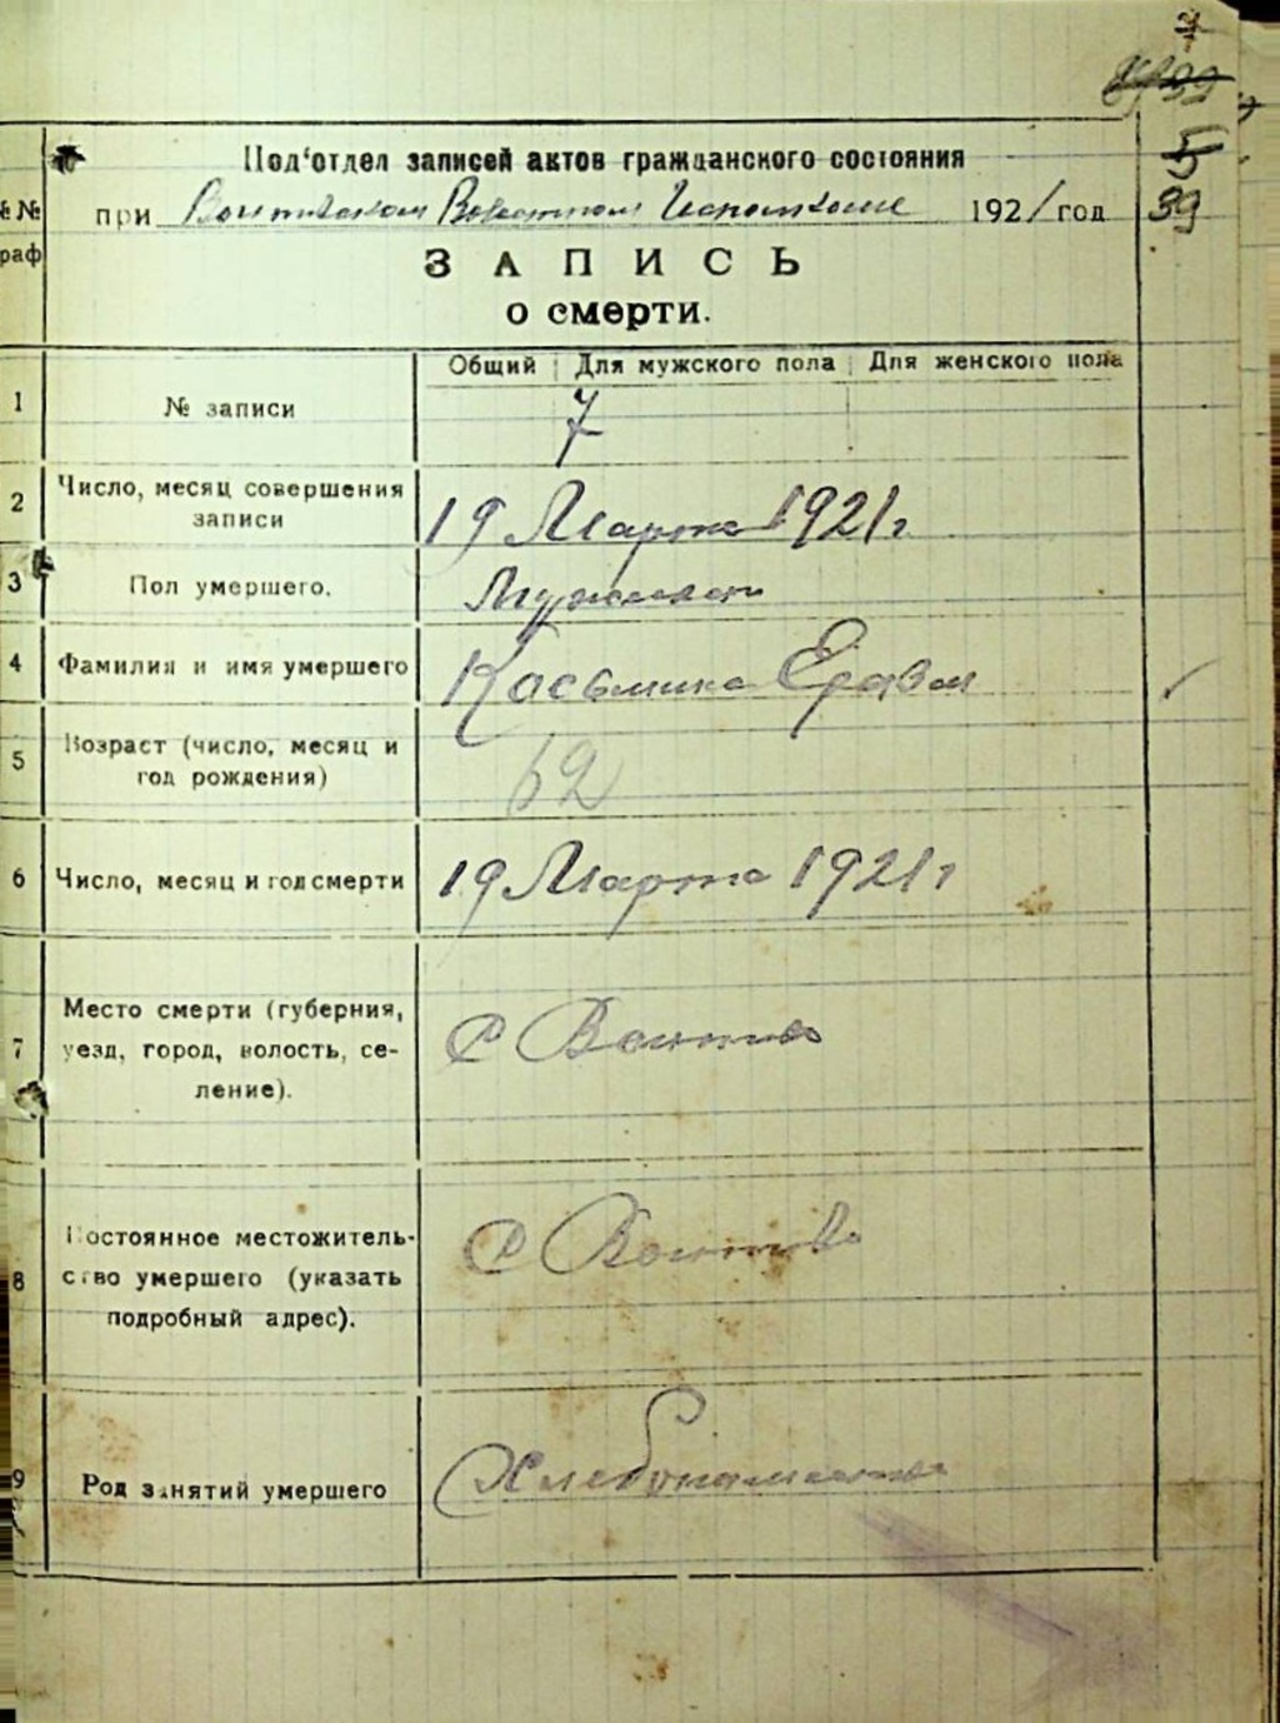 7
39
5
39
Под‘отдел записей актов гражданского состояния
№№ граф
при Волостном Исполкоме 1921 год
ЗАПИСЬ
о смерти.
Общий Для мужского пола Для женского пола
1 № записи 7
2 Число, месяц совершения записи 19 Марта 1921 г
3 Пол умершего. Мужской
4 Фамилия и имя умершего
5 Возраст (число, месяц и год рождения) 62
6 Число, месяц и год смерти 19 Марта 1921 г
7 Место смерти (губерния, уезд, город, волость, се-
ление). С
8 Постоянное местожитель-
ство умершего (указать подробный адрес). С
9 Род занятий умершего